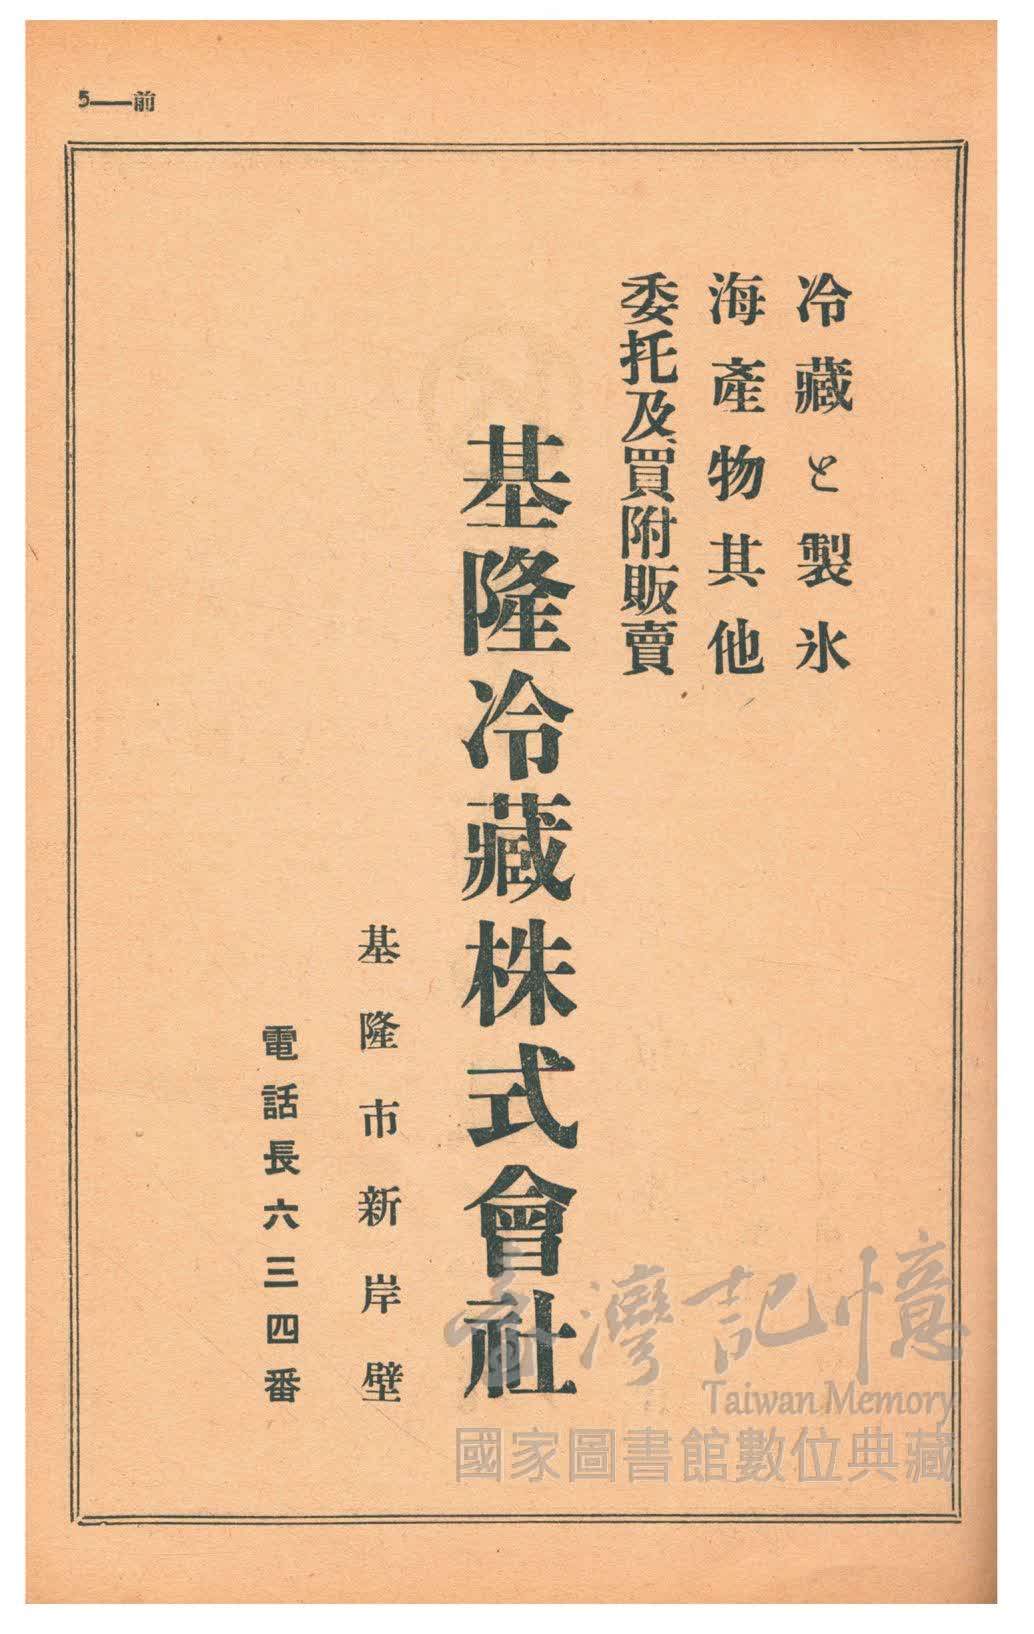 5——前
冷藏と製氷
海產物其他
委托及買附販賣
基隆冷藏株式會社
基隆市新岸壁
電話長六三四番
臺灣記憶
Taiwan Memory
國家圖書館數位典藏